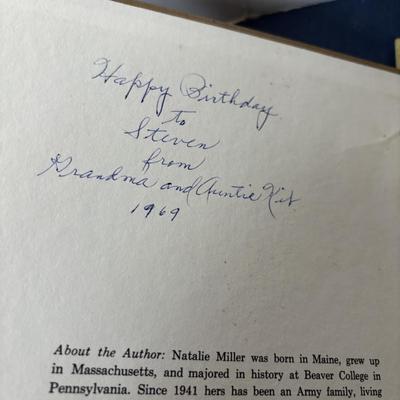 Happy Birthday
to
Steven
from
Grandma and Auntie Kit
1969
About the Author: Natalie Miller was born in Maine, grew up
in Massachusetts, and majored in history at Beaver College in
Pennsylvania. Since 1941 hers has been an Army family, living